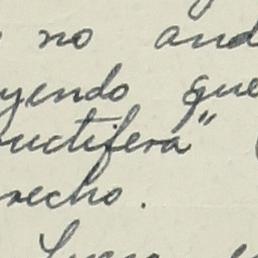 no and
yendo que
ructifera"
recho.